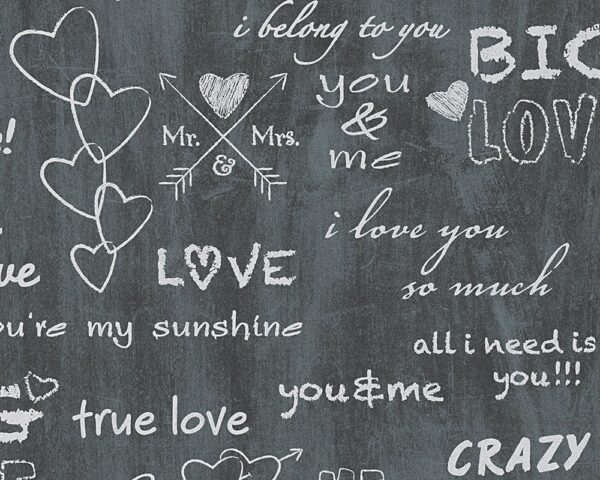 i belong to you
BIG
LOV
you
&
me
Mr. Mrs.
&
!
i love you
so much
LOVE
ve
ou're my sunshine
all i need is
you!!!
you&me
true love
CRAZY